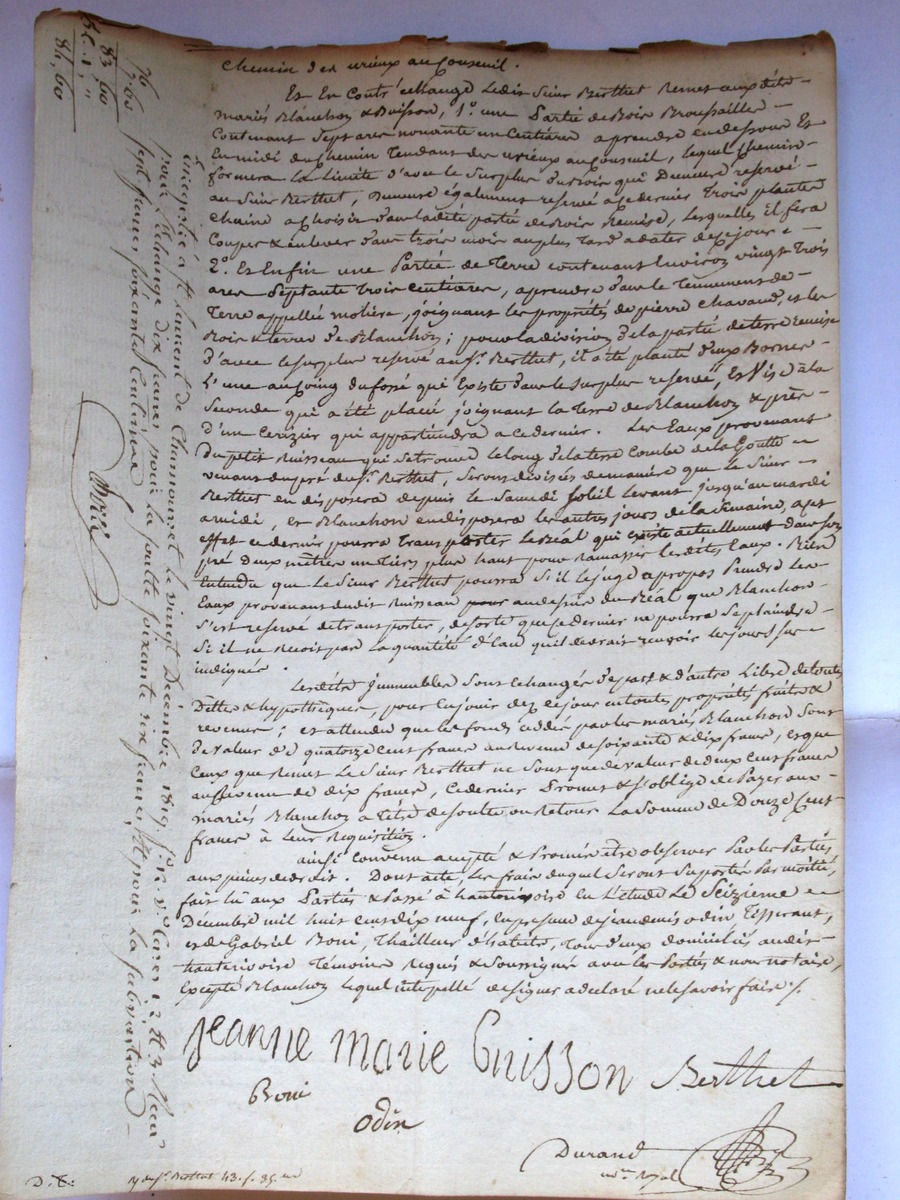 Chemin des urieux au Couseuil.
Et En Contr'échange Ledit Sieur Berthet Remet auxdits
mariés Blanchon & Buisson, 1.° une Partie de Bois Broussailles
Contenant Sept ares nonante un Centiares a prendre en dessous Et
En midi du Chemin Tendant des urieux au Couseuil, lequel Chemin
formera La limite d'avec le Surplus du bois qui Demeure réservé
au Sieur Berthet, Demeure également reservé a Ce dernier Trois plantes
Chaine a Choisir dans ladite partie de Bois Remise, lesquelles il fera
Couper & enlever dans trois mois au plus Tard a dater de ce jour
2.° Et Enfin une Partie de Terre contenant Environ vingt Trois
ares Septante Trois Centiares, aprendre dans le Tennement de
Terre appellée molière, joignant les propriétés de pierre Chavand, et les
Bois & terres de Blanchon; pour la division de la partie de terre remise
d'avec le Surplus reservé au S.r Berthet, il a été planté deux Bornes
L'une au Coing du fossé qui Existe dans le Surplus reservé, Et Vis à la
Seconde qui a été placé joignant la Terre de Blanchon & près
D'un Cerizier qui appartiendra a ce dernier. Les Eaux provenant
Du petit Ruisseau qui se trouve le long de la terre Combe de la Goutte
venant du pré du S.r Berthet, Seront divisés de manière que Le Sieur
Berthet en disposera depuis le Samedi Soleil Levant jusqu'au mardi
a midi, et Blanchon en disposera les autres jours de la Semaine, a cet
effet ce dernier pourra Transporter le réal qui existe actuellement dans son
pré Deux mètres un Tiers plus haut pour Ramasser lesdites Eaux. Bien
Entendu que Le Sieur Berthet pourra Si il le juge a propos Prendre Les
Eaux provenant dudit Ruisseau pour au dessus du Réal que Blanchon
S'est reservé de transporter, de sorte que ce dernier ne pourra Se plaindre
Si il ne Recoit pas La quantité d'Eau qu'il devrait recevoir les jours sus
indiqués.
Lesdits Immeubles Sont Echangés de part & d'autre Libre de toutes
Dettes & hypothèques, pour En jouir dez ce jour en toutes propriétés fruits &
revenus; et attendu que les fonds cédés par les mariés Blanchon Sont
de valeur de quatorze Cent francs au Revenu de soixante & dix francs, et que
Ceux que Remet Le Sieur Berthet ne Sont que de valeur de deux Cent francs
au Revenu de dix francs, Ce dernier Promet & s'oblige de Payer aux
mariés Blanchon a titre de soulte ou Retour La Somme de Douze Cent
francs à Leur Requisition.
ainsi Convenu accepté & Promis être observer Par les Parties
aux peines de droit. Dont acte, Les frais duquel Seront Suportés Par moitié,
fait lû aux Parties & Passé à hauterivoire En L'étude Le Seizieme
Décembre mil huit cent dix neuf, En presence de jean denis odin Tisserant,
et de Gabriel Boni, Thailleur d'habits, Tous deux domiciliés audit
hauterivoire Témoins Requis & Soussignés avec les Parties & nous notaire,
Excepté Blanchon lequel interpellé de signer a déclaré ne le savoir faire ./.
jeanne marie Buisson Berthet
Boni
odin
Durand
not.re Royal
D. E.
Enregistré à St Laurent de Chamousset le vingt Décembre 1819,
pour l'échange dix francs pour la soulte soixante six francs, et pour la subvention
sept francs soixante Centimes
76
7,60
83,60
84,60